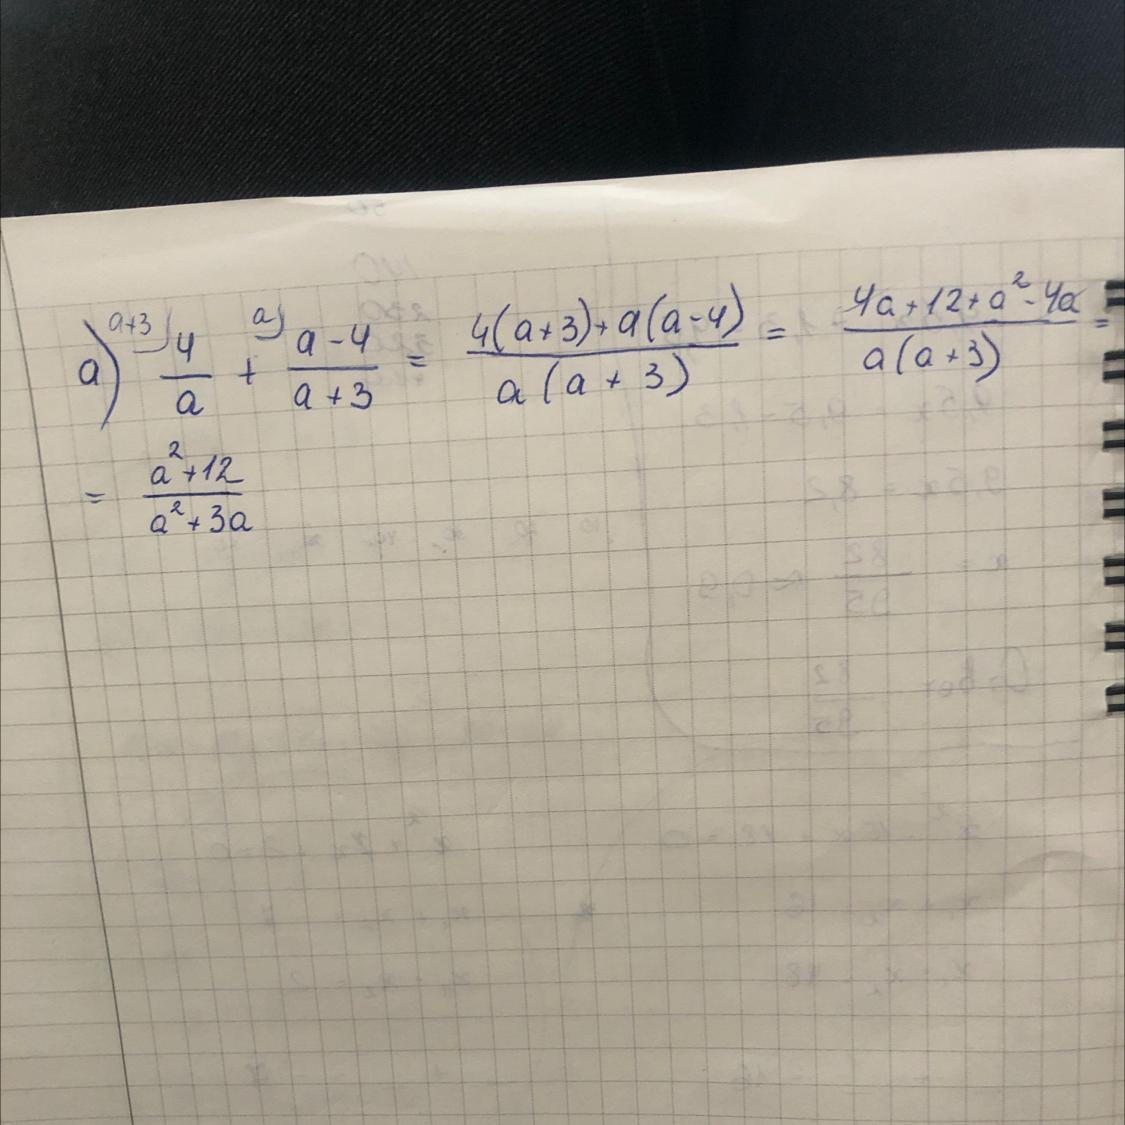 a) a+3) 4/a + a) a-4/a+3 = 4(a+3)+a(a-4)/a(a+3) = 4a+12+a²-4a/a(a+3) =
= a²+12/a²+3a